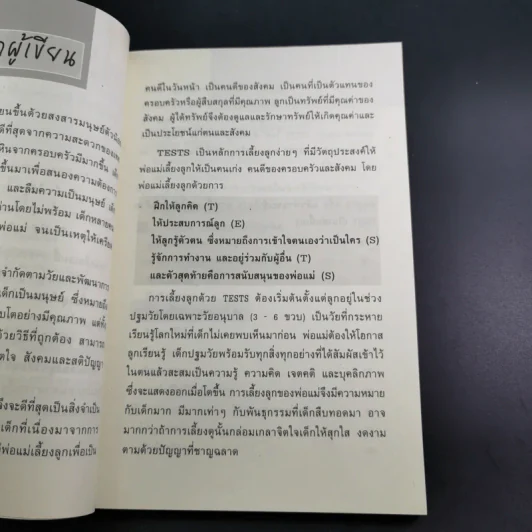 ผู้เขียน
ยนขึ้นด้วยสงสารมนุษย์ตัวน้อย
ดีที่สุดจากความสะดวกของพ่อ
หินจากครอบครัวมีมากขึ้น เด็ก
ขึ้นมาเพื่อสนองความต้องการ
และลืมความเป็นมนุษย์
านโดยไม่พร้อม เด็กหลายคน
พ่อแม่ จนเป็นเหตุให้เครียด
จำกัดตามวัยและพัฒนาการ
เด็กเป็นมนุษย์ ซึ่งหมายถึง
บโตอย่างมีคุณภาพ แต่ทั้ง
ด้วยวิธีที่ถูกต้อง สามารถ
ตใจ สังคมและสติปัญญา
จึงจะดีที่สุดเป็นสิ่งจำเป็น
เด็กที่เนื่องมาจากการ
พ่อแม่เลี้ยงลูกเพื่อเป็น
คนดีในวันหน้า เป็นคนดีของสังคม เป็นคนที่เป็นตัวแทนของ
ครอบครัวหรือผู้สืบสกุลที่มีคุณภาพ ลูกเป็นทรัพย์ที่มีคุณค่าของ
สังคม ผู้ได้ทรัพย์จึงต้องดูแลและรักษาทรัพย์ให้เกิดคุณค่าและ
เป็นประโยชน์แก่ตนและสังคม
TESTS เป็นหลักการเลี้ยงลูกง่ายๆ ที่มีวัตถุประสงค์ให้
พ่อแม่เลี้ยงลูกให้เป็นคนเก่ง คนดีของครอบครัวและสังคม โดย
พ่อแม่เลี้ยงลูกด้วยการ
ฝึกให้ลูกคิด (T)
ให้ประสบการณ์ลูก (E)
ให้ลูกรู้ตัวตน ซึ่งหมายถึงการเข้าใจตนเองว่าเป็นใคร (S)
รู้จักการทำงาน และอยู่ร่วมกับผู้อื่น (T)
และตัวสุดท้ายคือการสนับสนุนของพ่อแม่ (S)
การเลี้ยงลูกด้วย TESTS ต้องเริ่มต้นตั้งแต่ลูกอยู่ในช่วง
ปฐมวัยโดยเฉพาะวัยอนุบาล (3 - 6 ขวบ) เป็นวัยที่กระหาย
เรียนรู้โลกใหม่ที่เด็กไม่เคยพบเห็นมาก่อน พ่อแม่ต้องให้โอกาส
ลูกเรียนรู้ เด็กปฐมวัยพร้อมรับทุกสิ่งทุกอย่างที่ได้สัมผัสเข้าไว้
ในตนแล้วสะสมเป็นความรู้ ความคิด เจตคติ และบุคลิกภาพ
ซึ่งจะแสดงออกเมื่อโตขึ้น การเลี้ยงลูกของพ่อแม่จึงมีความหมาย
กับเด็กมาก มีมากเท่าๆ กับพันธุกรรมที่เด็กสืบทอดมา อาจ
มากกว่าถ้าการเลี้ยงดูนั้นกล่อมเกลาจิตใจเด็กให้สุกใส งดงาม
ตามด้วยปัญญาที่ชาญฉลาด